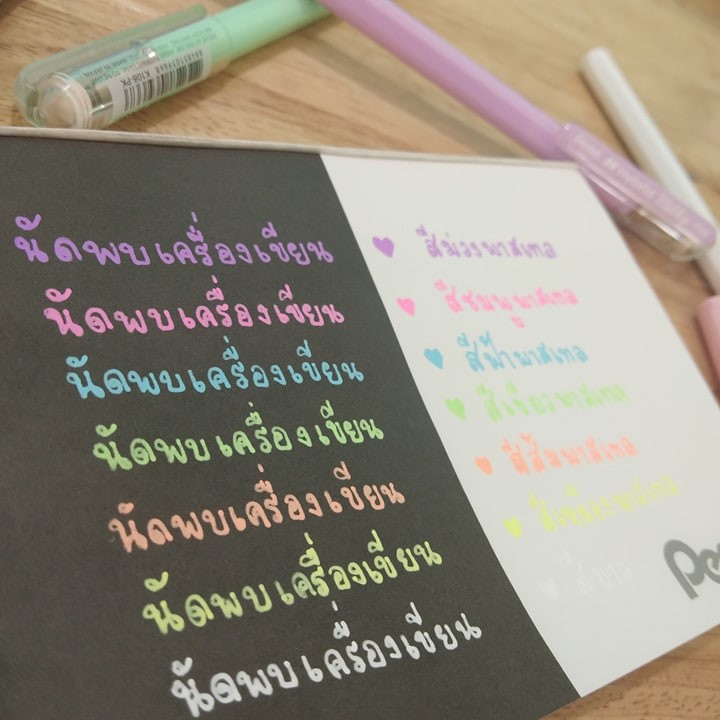 K108-PK
นัดพบเครื่องเขียน ♥ สีม่วงพาสเทล
นัดพบเครื่องเขียน ♥ สีชมพูพาสเทล
นัดพบเครื่องเขียน ♥ สีฟ้าพาสเทล
นัดพบเครื่องเขียน ♥ สีเขียวพาสเทล
นัดพบเครื่องเขียน ♥ สีส้มพาสเทล
นัดพบเครื่องเขียน ♥ สีเหลืองพาสเทล
นัดพบเครื่องเขียน ♥ สีขาว
Pe